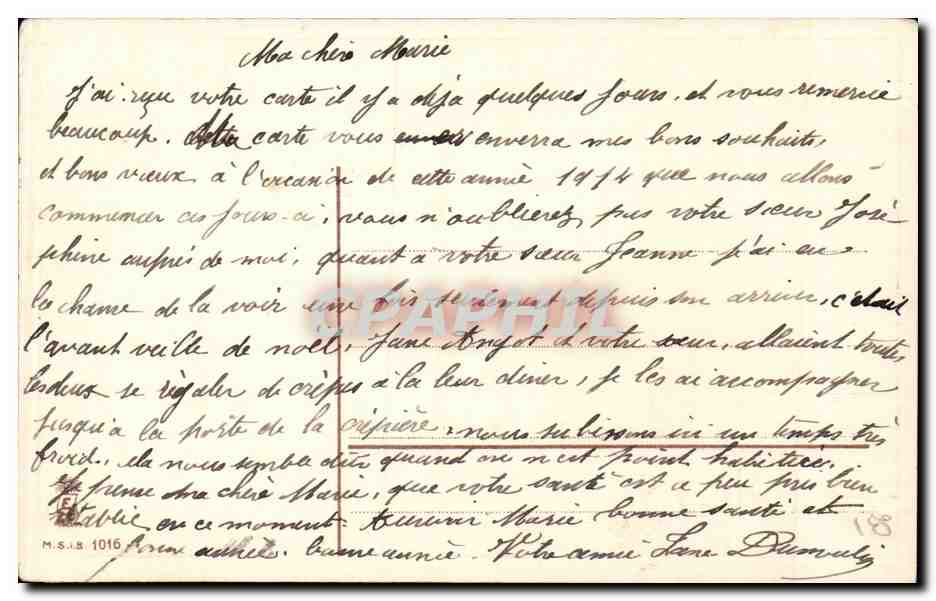 Ma chère Marie
J'ai reçu votre carte il y a déjà quelques jours, et vous remercie
beaucoup. carte vous enverra mes bons souhaits,
et bons vœux à l'occasion de cette année 1914 que nous allons
commencer ces jours-ci, vous n'oublierez pas votre sœur José
phine auprès de moi, quant à votre sœur Jeanne j'ai eu
la chance de la voir une fois seulement depuis son arriver, c'était
l'avant veille de noël, Jane Angot et votre sœur, allaient toutes
les deux se régaler de crêpes à la leur diner, je les ai accompagner
jusqu'à la porte de la crépière, nous subissons ici un temps très
froid, cela nous semble dûr quand on n'est point habituée.
Je pense Ma chère Marie, que votre santé est a peu près bien
rétablie en ce moment. Marie bonne santé et
bonne année. bonne année. Votre amie Jane Dumoulin
M.S.i.B. 1016
CPAPHIL